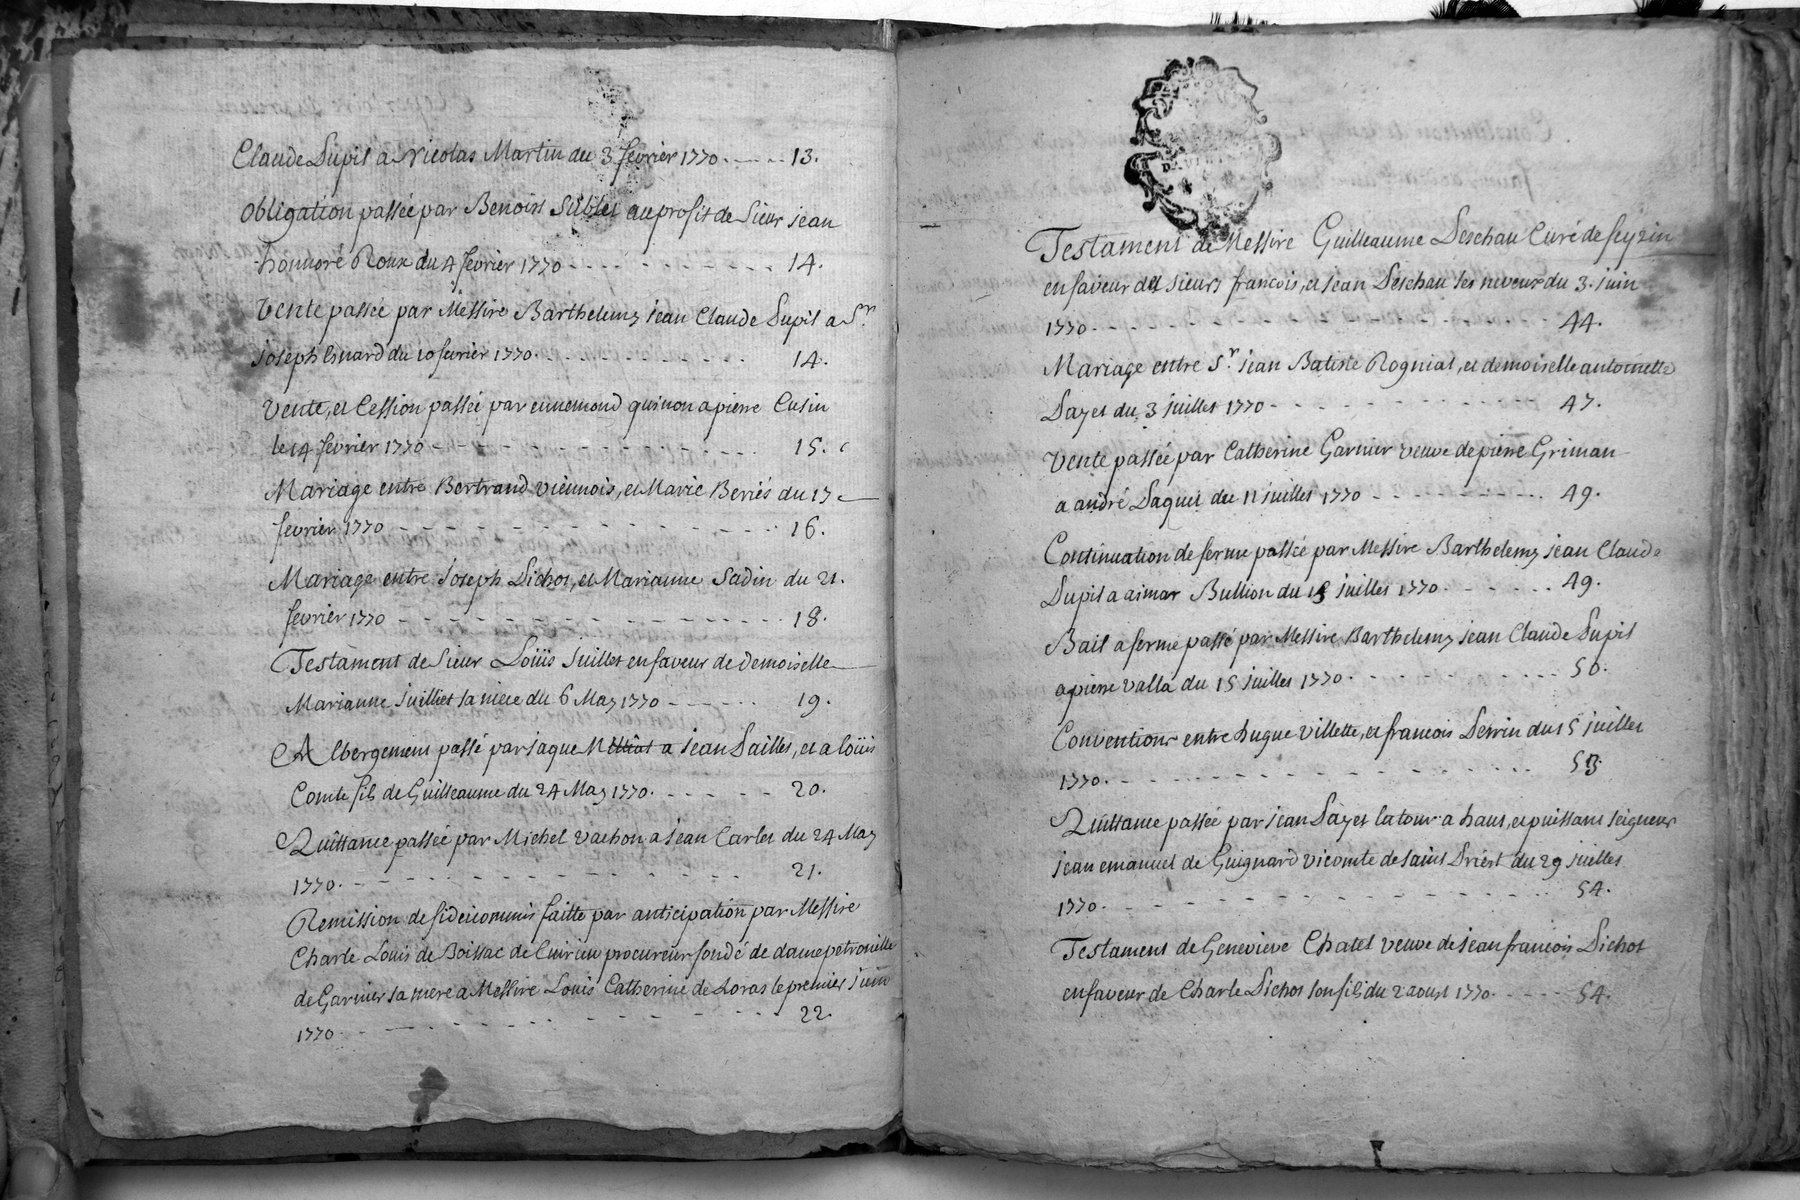 Claude Dupil a Nicolas Martin du 3 fevrier 1770. - - - 13.
Obligation passée par Benoist Sublet au profit de Sieur jean
honnoré Roux du 4 fevrier 1770 - - - - - - - 14.
Vente passée par Messire Barthelemy jean Claude Dupil a Sr.
joseph du 10 fevrier 1770. - - - - - - - 14.
Vente, et Cession passée par ennemond quinon a pierre Cusin
le 14 fevrier 1770 - - - - - - - - - 15.
Mariage entre Bertrand viennois, et Marie Beriés du 17
fevrier 1770 - - - - - - - - - - - 16.
Mariage entre joseph Dichot, et Marianne Sadin du 21.
fevrier 1770 - - - - - - - - - - - 18.
Testament de Sieur Loüis juillet en faveur de demoiselle
Marianne juilliet sa niece du 6 May 1770 - - - - - 19.
Albergement passé par jaque a jean Dailles, et a loüis
Comte fils de Guilleaume du 24 May 1770. - - - - - 20.
Quittance passée par Michel vachon a jean Carlet du 24 May
1770. - - - - - - - - - - - - 21.
Remission de fideicommis faitte par anticipation par Messire
Charle Louis de Boissac de Cuirieu procureur fondé de dame petronille
de Garnier sa mere a Messire Louis Catherine de Loras le premier juin
1770 - - - - - - - - - - - 22.
Testament de Messire Guilleaume Deschau Curé de feyzin
en faveur de sieurs francois, et jean Deschau ses neveux du 3. juin
1770. - - - - - - - - - - - - 44.
Mariage entre Sr. jean Batiste Rogniat, et demoiselle antoinette
Dayet du 3 juillet 1770 - - - - - - - - 47.
Vente passée par Catherine Garnier veuve de pierre Griman
a andré Daquet du 11 juillet 1770 - - - - - - - 49.
Continuation de ferme passée par Messire Barthelemy jean Claude
Dupil a aimar Bullion du juillet 1770. - - - - - 49.
Bail a ferme passé par Messire Barthelemy jean Claude Dupil
a pierre valla du 15 juillet 1770. - - - - - - - 50.
Conventions entre hugue villette, et francois Derrin du 15 juillet
1770. - - - - - - - - - - - - 53.
Quittance passée par jean Dayet latour a haut, et puissant seigneur
jean emanuel de Guignard vicomte de saint Priest du 29 juillet
1770. - - - - - - - - - - - - 54.
Testament de Genevieve Chatel veuve de jean francois Dichot
en faveur de Charle Dichot son fils du 2 aoust 1770. - - - - 54.